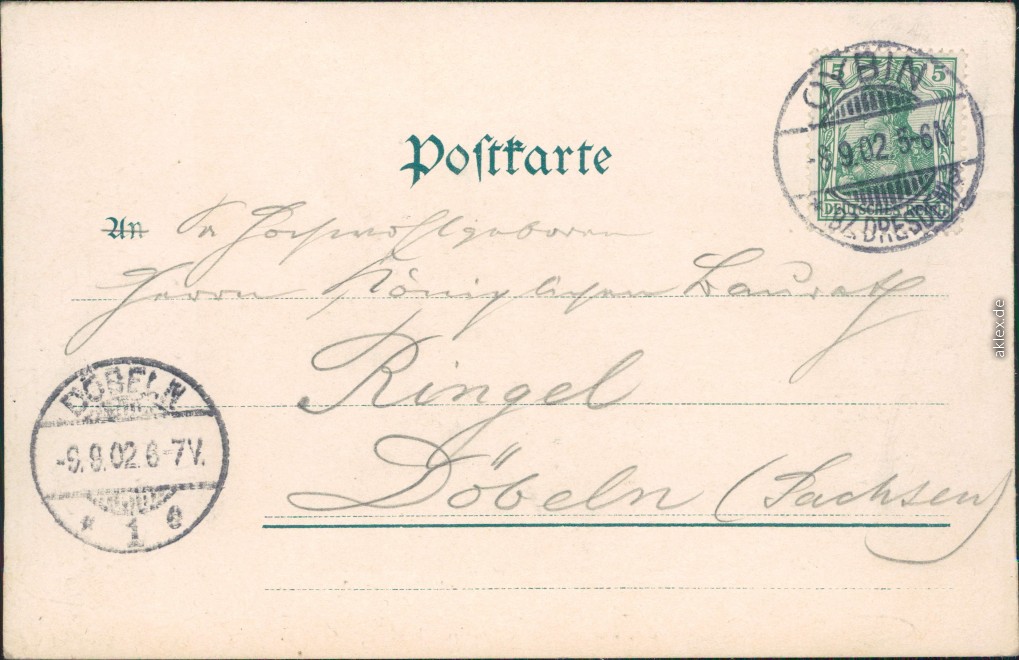 5 5
DEUTSCHES REICH
OYBIN
-8.9.02 5-6N
* BZ. DRESDEN *
Postkarte
An Sr Hochwohlgeboren
Herrn Königlichen Baurath
Ringel
Döbeln (Sachsen)
DÖBELN
-9.9.02.6-7V.
* 1 e
aklex.de